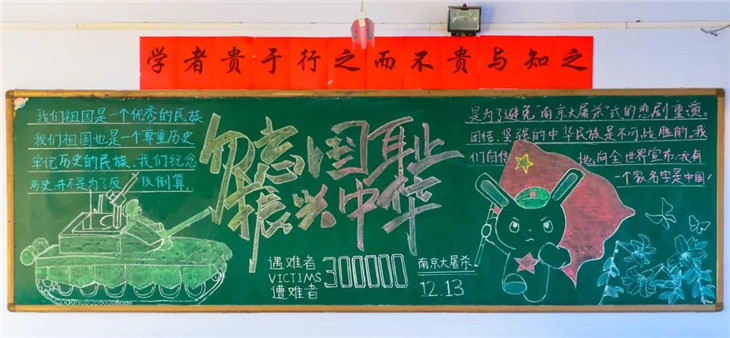 学者贵于行之而不贵与知之
我们祖国是一个优秀的民族
我们祖国也是一个尊重历史
牢记历史的民族,我们纪念
历史并不是为了反攻倒算,
勿忘国耻
振兴中华
遇难者
VICTIMS 300000
遭难者
南京大屠杀
12.13
是为了避免"南京大屠杀"式的悲剧重演。
团结、坚强的中华民族是不可战胜的,我
们自信地,向全世界宣布:我有
一个家名字是中国!